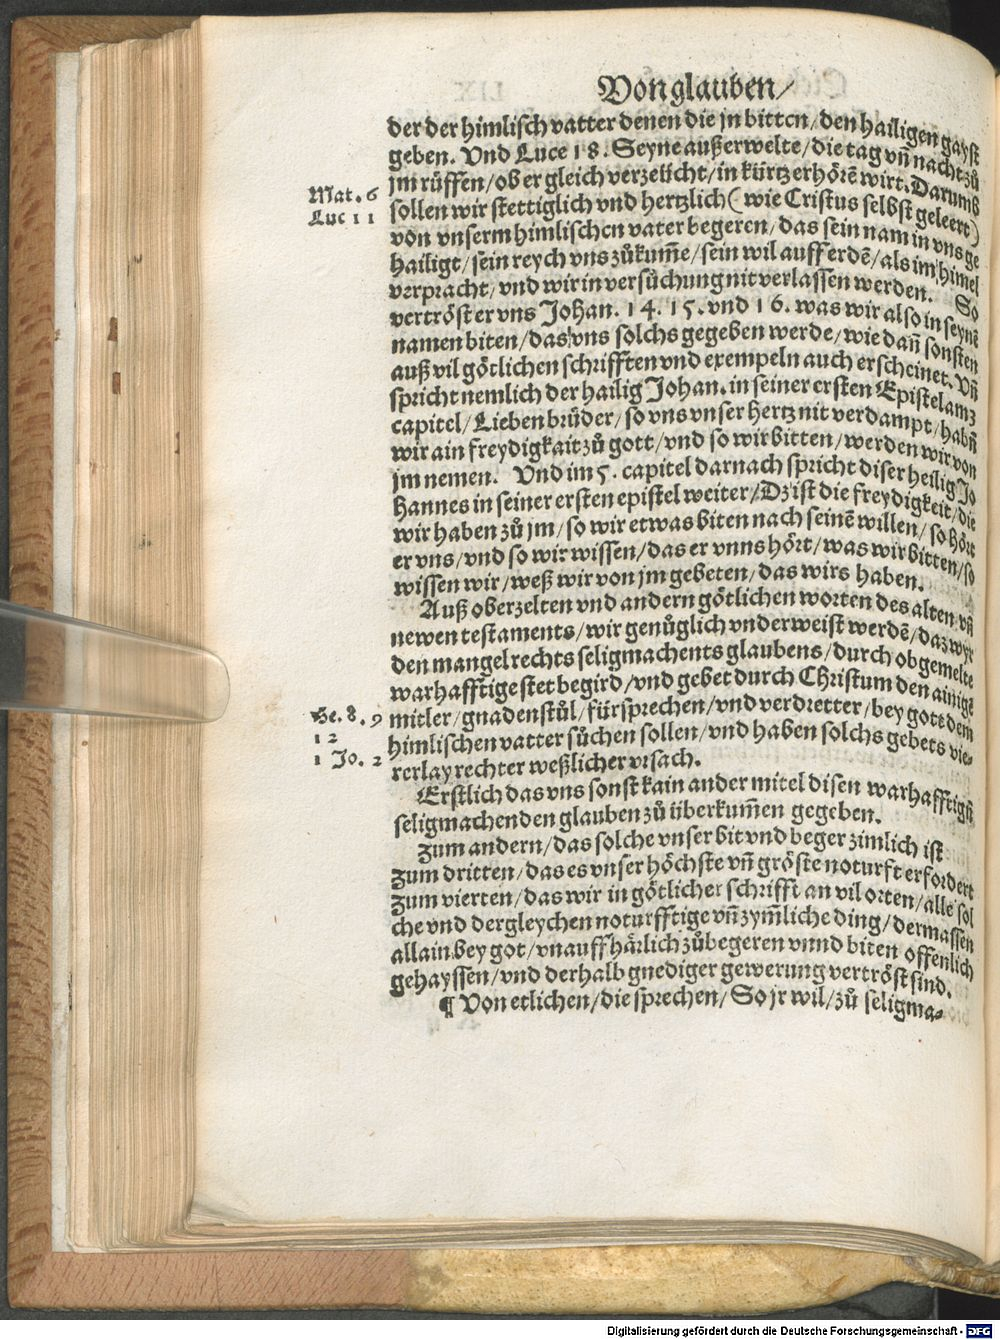 Von glauben/
der der himlisch vatter denen die jn bitten/den hailigen gayst
geben. Vnd Luce 18. Seyne außerwelte/die tag vn̄ nacht zů
jm růffen/ob er gleich verzeücht/in kürtz erhörē wirt. Darumb
Mat. 6
Luc 11
sollen wir stettiglich vnd hertzlich (wie Cristus selbst geleert)
von vnserm himlischen vater begeren/das sein nam in vns ge
hailigt/sein reych vns zůkum̄e/sein wil auff erdē/als im himel
verpracht/vnd wir in versůchung nit verlassen werden. So
vertröst er vns Johan. 14. 15. vnd 16. was wir also in seynē
namen biten/das vns solchs gegeben werde/wie dan̄ sonsten
auß vil götlichen schrifften vnd exempeln auch erscheinet. Vn̄
spricht nemlich der hailig Johan. in seiner ersten Epistel am 3
capitel/Lieben brüder/so vns vnser hertz nit verdampt/habn̄
wir ain freydigkait zů gott/vnd so wir bitten/werden wir von
jm nemen. Vnd im 5. capitel darnach spricht diser heilig Jo
hannes in seiner ersten epistel weiter/Dz ist die freydigkeit/die
wir haben zů jm/so wir etwas biten nach seinē willen/so hört
er vns/vnd so wir wissen/das er vnns hört/was wir bitten/so
wissen wir/weß wir von jm gebeten/das wirs haben.
Auß oberzelten vnd andern götlichen worten des alten vn̄
newen testaments/wir genůglich vnderweist werdē/daz wyr
den mangel rechts seligmachents glaubens/durch obgemelte
warhafftige stet begird/vnd gebet durch Christum den ainigē
He. 8. 9
12
1 Jo. 2
mitler/gnadenstůl/fürsprechen/vnd verdretter/bey gott dem
himlischen vatter sůchen sollen/vnd haben solchs gebets vie⸗
rerlay rechter weßlicher vrsach.
Erstlich das vns sonst kain ander mitel disen warhafftign̄
seligmachenden glauben zů überkum̄en gegeben.
Zum andern/das solche vnser bit vnd beger zimlich ist
Zum dritten/das es vnser höchste vn̄ gröste noturft erfordert
Zum vierten/das wir in götlicher schrifft an vil orten/alle sol
che vnd dergleychen noturfftige vn̄ zym̄liche ding/dermassen
allain bey got/vnauffhärlich zůbegeren vnnd biten offenlich
gehayssen/vnd derhalb gnediger gewerung vertröst sind.
¶ Von etlichen/die sprechen/So jr wil/zů seligma⸗
Digitalisierung gefördert durch die Deutsche Forschungsgemeinschaft - DFG